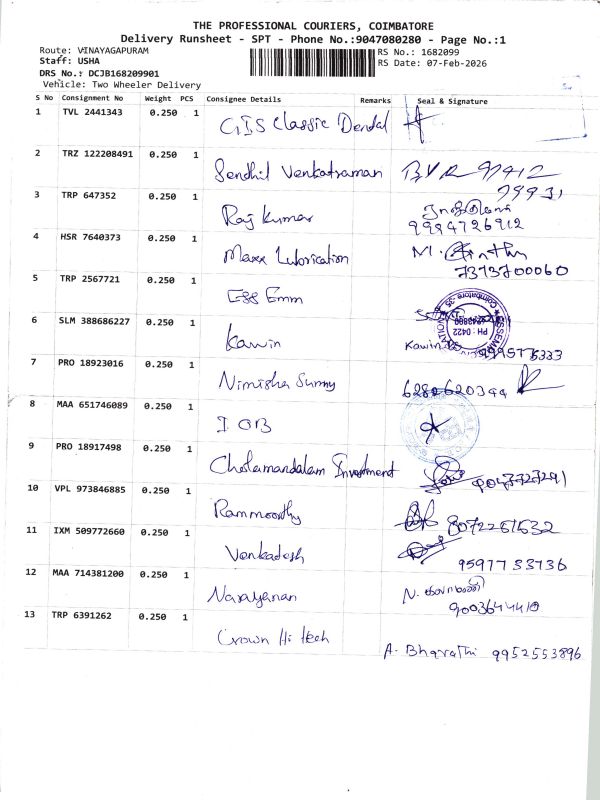 THE PROFESSIONAL COURIERS, COIMBATORE
Delivery Runsheet - SPT - Phone No.:9047080280 - Page No.:1
Route: VINAYAGAPURAM
RS No.: 1682099
Staff: USHA
RS Date: 07-Feb-2026
DRS No.: DCJB168209901
Vehicle: Two Wheeler Delivery
S No Consignment No Weight PCS Consignee Details Remarks Seal & Signature
1 TVL 2441343 0.250 1 GIS Classic Dental
2 TRZ 122208491 0.250 1 Sendhil Venkatraman
3 TRP 647352 0.250 1 Raj Kumar
9994726912
4 HSR 7640373 0.250 1 Maxx Lubrication M.
7373700060
5 TRP 2567721 0.250 1 Ess Emm
6 SLM 388686227 0.250 1 Kawin Kawin
7 PRO 18923016 0.250 1 Nimisha Sunny 6282620344
8 MAA 651746089 0.250 1 IOB
9 PRO 18917498 0.250 1 Cholamandalam Investment
10 VPL 973846885 0.250 1 Rammoorthy 8072261532
11 IXM 509772660 0.250 1 Venkadesh
9597733736
12 MAA 714381200 0.250 1 Narayanan N.
9003644410
13 TRP 6391262 0.250 1 Crown Hi tech
A. Bharathi 9952553896